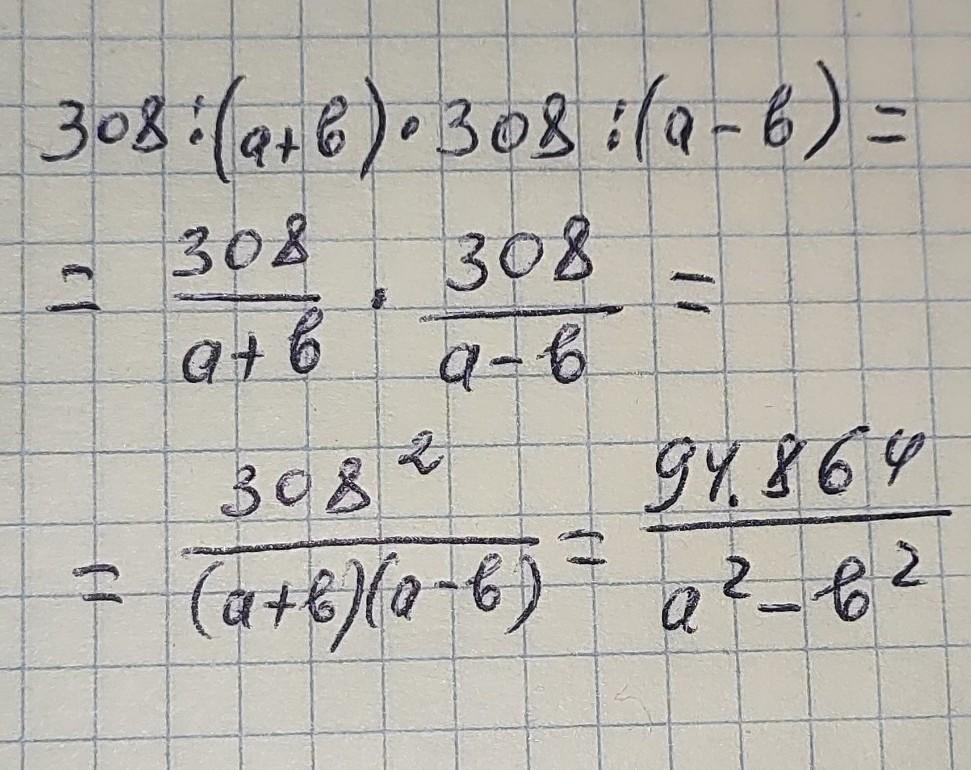 308:(a+b)·308:(a-b)=
= 308/(a+b) · 308/(a-b) =
= 308²/((a+b)(a-b)) = 94.864/(a²-b²)